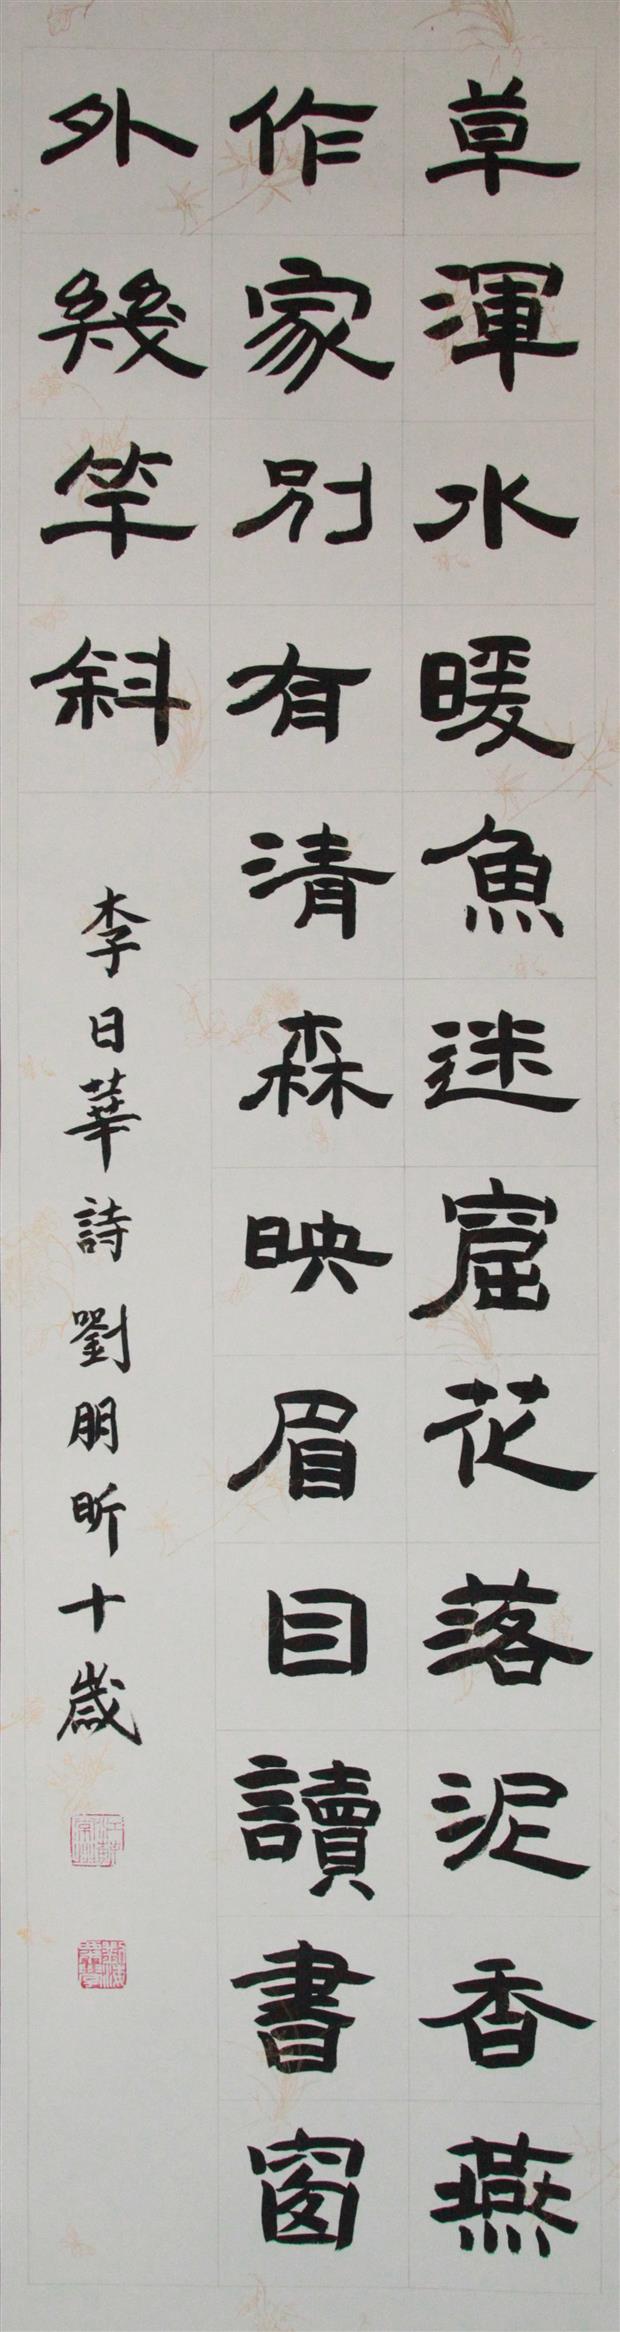 草渾水暖魚迷窟花落泥香燕
作家別有清森映眉目讀書窗
外幾竿斜
李日華詩劉朋昕十歲